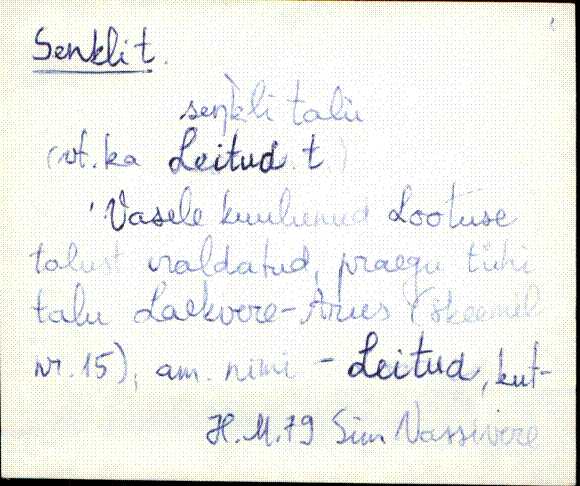 Senkli t.
sen̆kli talu
(vt. ka Leitud t.)
'Vasele kuulunud Lootuse
talust eraldatud, praegu tühi
talu Laekvere-Arus (skeemil
nr. 15), am. nimi - Leitud, kut-
H.M. 79 Sim Vassivere